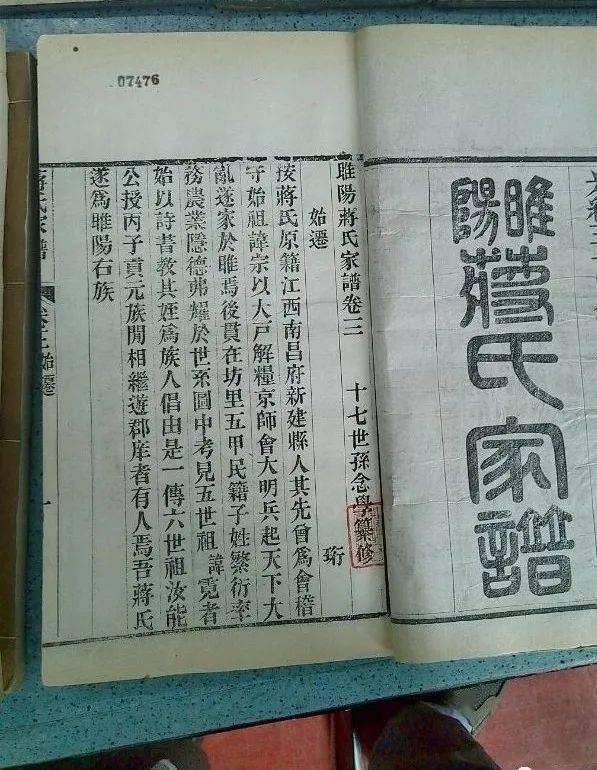 睢陽蔣氏家譜
07476
睢陽蔣氏家譜卷三
十七世孫念學纂修
珩
始遷
按蔣氏原籍江西南昌府新建縣人其先曾爲會稽
守始祖諱宗以大戸解糧京師會大明兵起天下大
亂遂家於睢焉後貫在坊里五甲民籍子姓繁衍率
務農業隱德弗耀於世系圖中考見五世祖諱霓者
始以詩書教其姪爲族人倡由是一傳六世祖汝能
公授丙子貢元族閒相繼遊郡庠者有人焉吾蔣氏
遂爲睢陽右族
蔣氏家譜 始遷 一